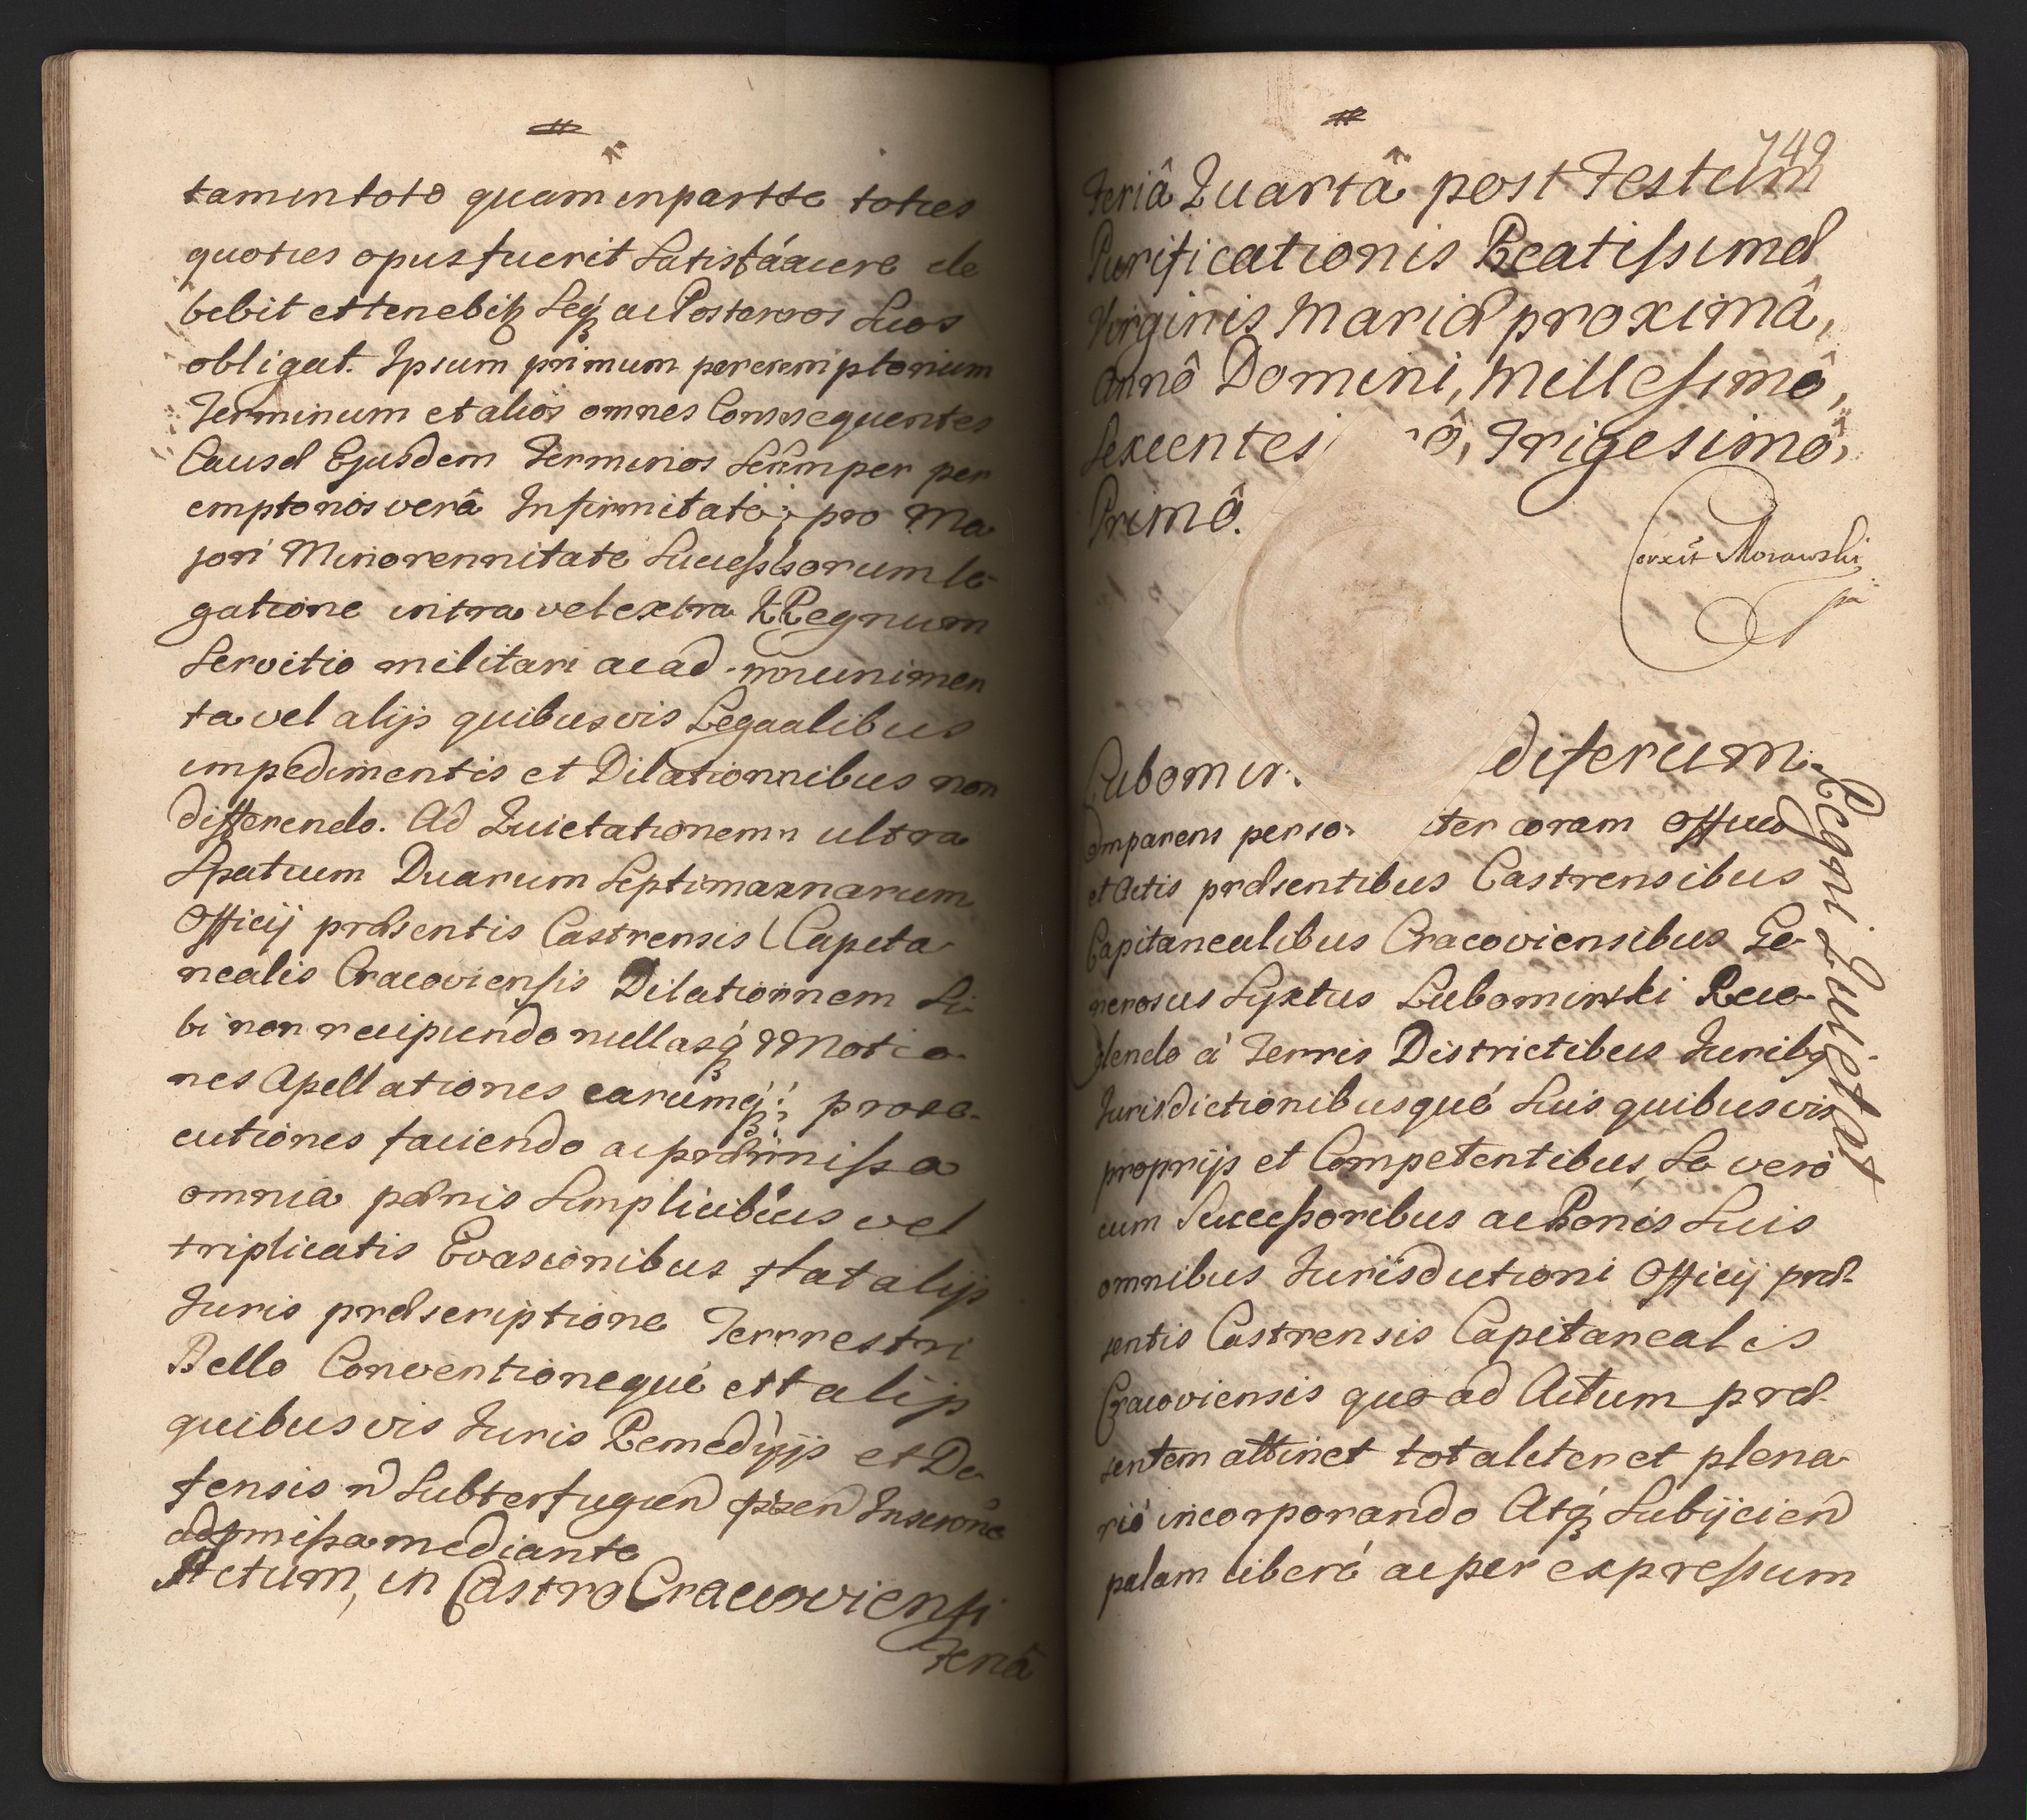 tam in toto quam in partte toties
quoties opus fuerit Satisfáacere de
bebit et tenebitꝫ Seqꝫ ac Posterros Suos
obligat. Ipsum primum pereremptorium
Terminum et alios omnes Consssequentes
Causæ Ejusdem Terminos Semper per
emptorios verâ Infirmitate; pro Ma
jori Minorennitate Successsorum le
gatione intra vel extra RRegnum
Servitio militari ac ad munimen
ta vel alijs quibusvis Legaalibus
impedimentis et Dilationnibus non
differendo. Ad Quietationemn ultra
Spatium Duarum Septimaxnarum
Officij præsentis Castrensis Capita
nealis Cracoviensis Dilationnem Si
bi non recipiendo nullasqꝫ Motio
nes Apellationes earumqꝫ prose
cutiones faciendo ac præmissa
omnia pænis Simplicibus vel
triplicatis Evasionibus et alijs
Juris præscriptione Terrrestri
Bello Conventionequé ett alijs
quibusvis Juris Remedijjs et De
fensis n Subterfugien Inscrone
admissa mediante
Actum, in Castro Cracoviensi
Feriâ
#
749
Feriâ Quartâ post Festum
Purificationis Beatissimæ
Virginis Mariæ proximâ,
Annô Domini, Millesimô,
Sexcentes ô, Trigesimô,
Primô.
Corexit Morawski
Lubomir. diserum.
Regni Quietat
Comparens perso iter coram Officio
et Actis præsentibus Castrensibus
Capitanealibus Cracoviensibus Ge
nerosus Syxtus Lubomirski Rece
dendo á Terris Districtibus Juribꝫ
Jurisdictionibusqué Suis quibusvis
proprijs et Competentibus, Se vero
cum Successoribus ac Bonis Suis
omnibus Jurisdictioni Officij præ
sentis Castrensis Capitanealis
Cracoviensis quo ad Actum præ
sentem attinet totaliter et plena
rié incorporando Atqꝫ Subijcien
palam liberé ac per expressum